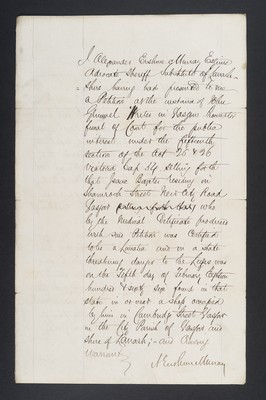 I Alexander Erskine Murray Esquire
Advocate Sheriff Substitute of Lanark-
=shire having had presented to me
a Petition at the instance of John
Gemmel Writer in Glasgow Procurator
Fiscal of Court for the public
interest under the fifteenth
section of the Act 25 & 26
Victoria Cap 54 setting forth
that James Baxter residing in
Shamrock Street New City Road
Glasgow who
by the Medical Certificate produced
with said Petition was Certified
to be a Lunatic and in a state
threatening danger to the Lieges was
on the Fifth day of February Eighteen
hundred & sixty six found in that
state in or near a shop occupied
by him in Cambridge Street Glasgow
in the City Parish of Glasgow and
Shire of Lanark; - and
warrant
A Erskine Murray